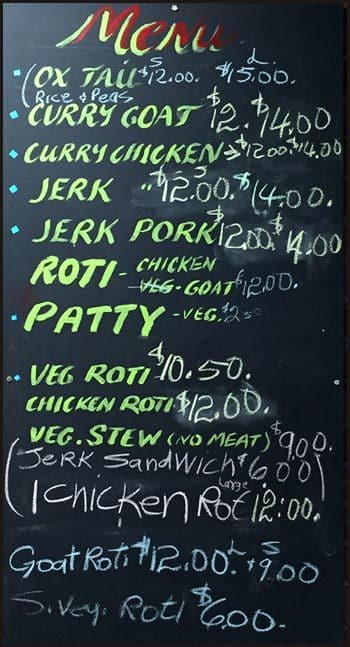 Menu
S L
OX TAIL $12.00. $15.00.
(Rice & Peas
CURRY GOAT $12. $14.00
CURRY CHICKEN $12.00. $14.00
JERK " $12.00. $14.00.
JERK PORK $12.00 $14.00
ROTI - CHICKEN
VEG - GOAT $12.00.
PATTY - VEG. $2.50
VEG ROTI $10.50.
CHICKEN ROTI $12.00.
VEG. STEW (NO MEAT) $9.00.
(JERK SANDWICH $6.00)
1 CHICKEN Large Rot 12:00.
Goat Roti $12.00. L $9.00 S
S. Veg. Roti $6.00.